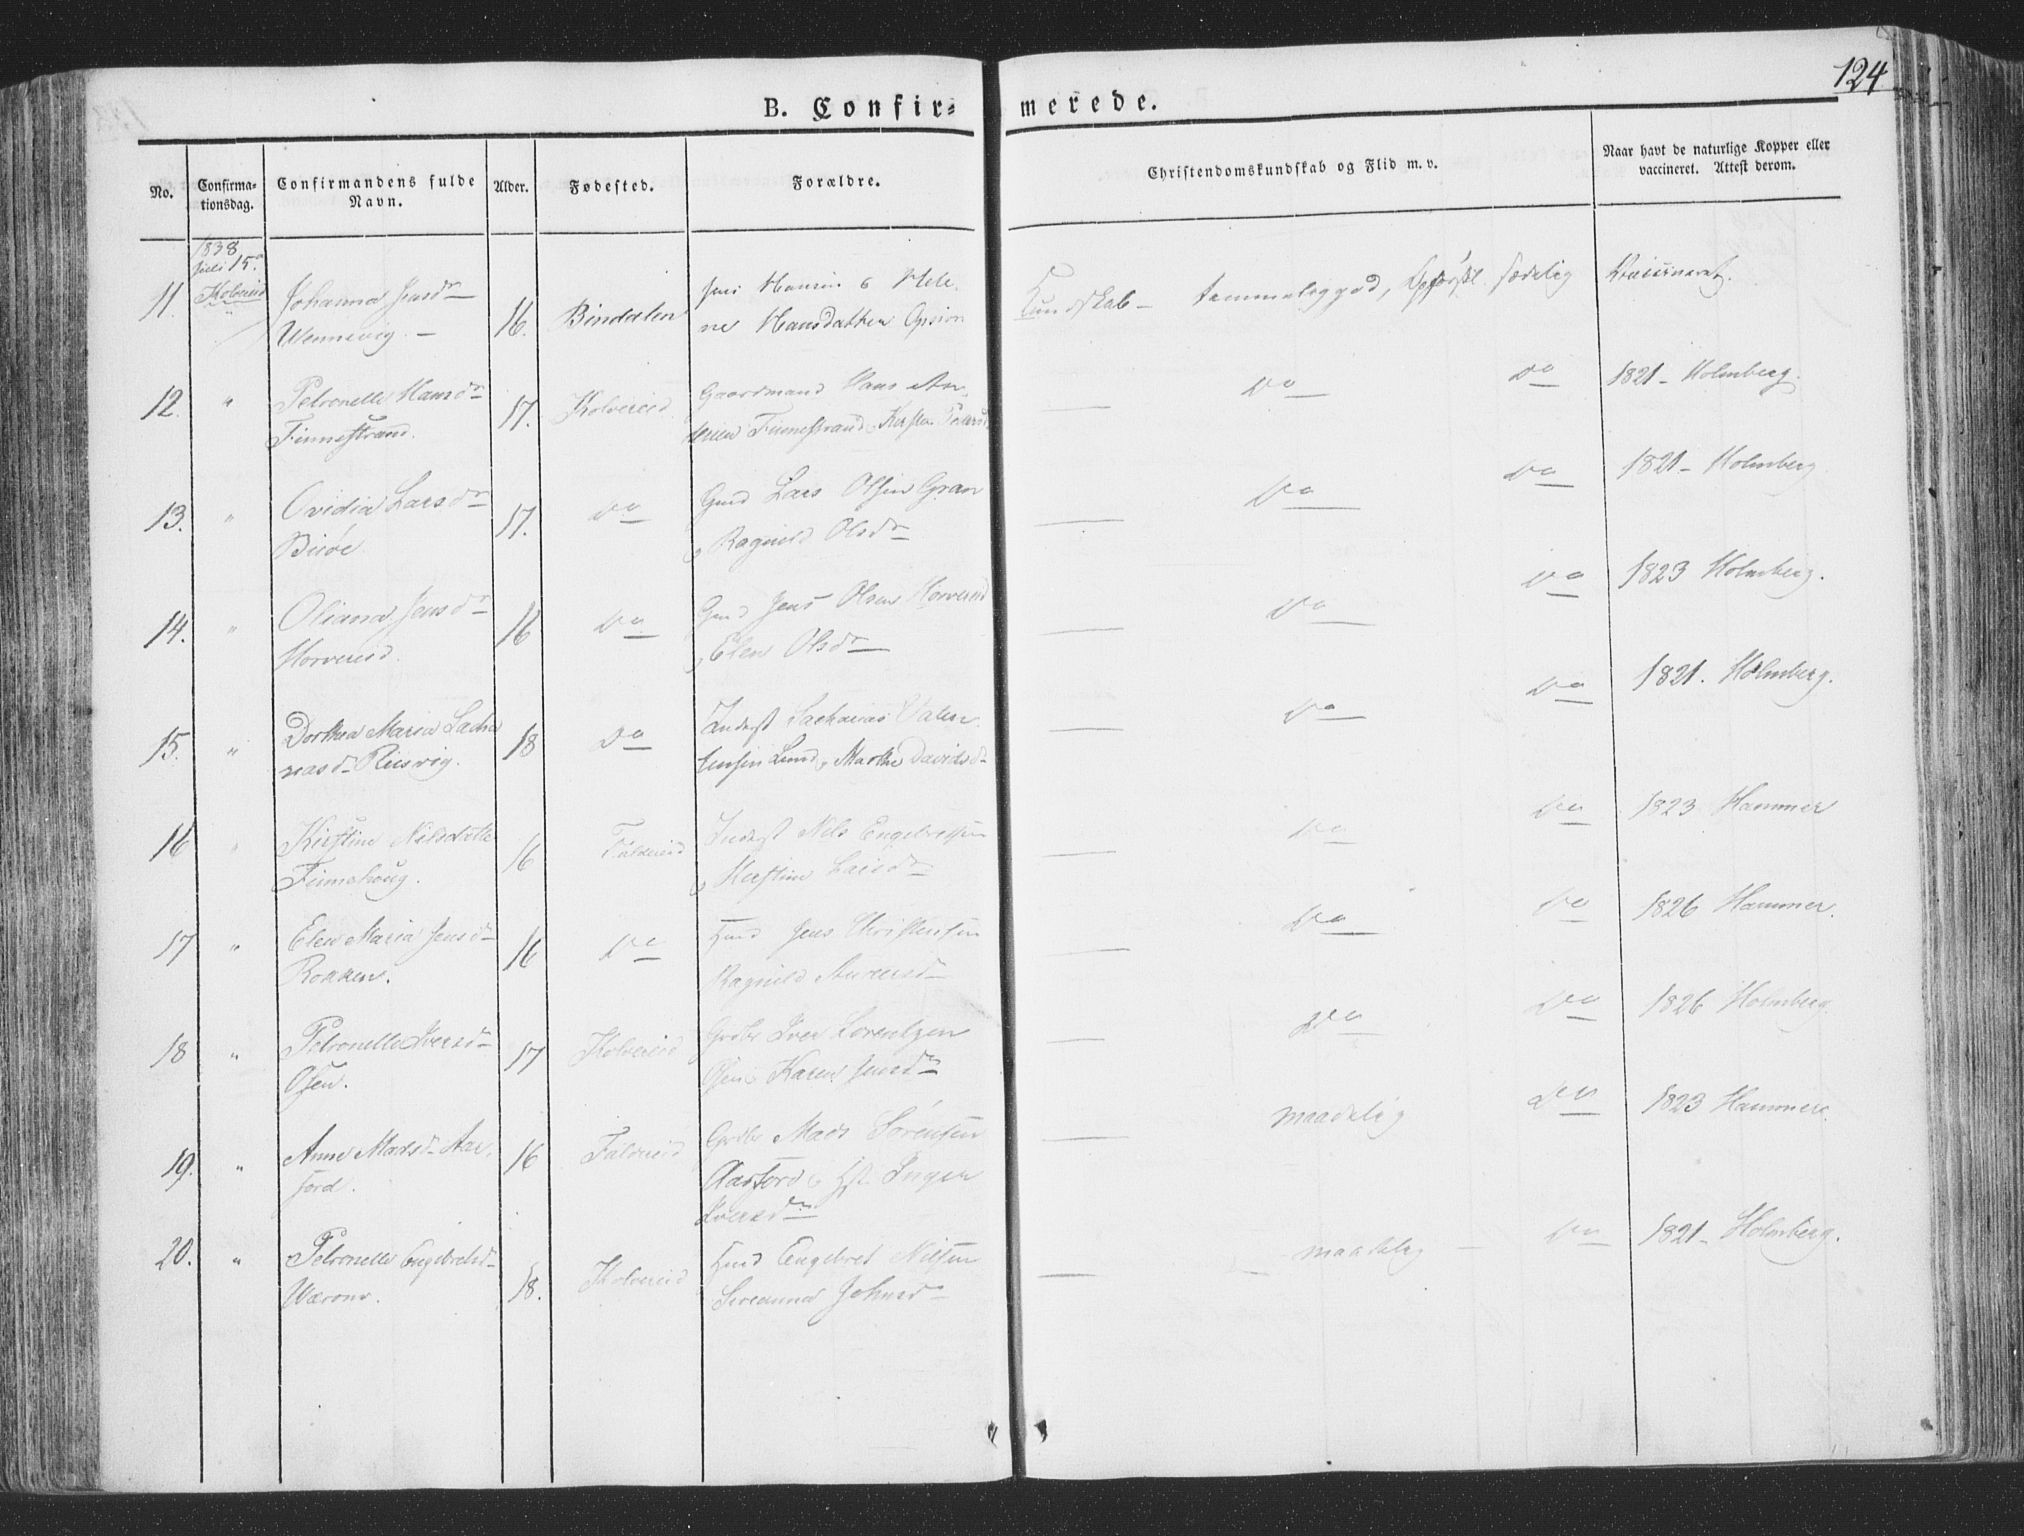 124
B. Confir- merede.
No.
Confirma-
tionsdag.
Confirmandens fulde
Navn.
Alder.
Fødested.
Forældre.
Christendomskundskab og Flid m. v.
Naar havt de naturlige Kopper eller
vaccineret. Attest derom.
1838
Juli 15.
11. Kolvereid Johanna Jensdr
Wennevig. 16. Bindalen
Jens Hansen & Hele-
ne Hansdatter
Kundskab - temmeliggod, sædelig Vaccineret.
12. " Petronelle Hansdr
Finnestrand. 17. Kolvereid
Gaardmand Hans An-
Finnestrand & Kirsten
Do Do 1821 - Holmberg.
13. " Ovidia Larsdr
17. Do
Gmd Lars Olsen Gran
& Ragnild Olsdr
Do Do 1821 - Holmberg
14. " Oliana Jensdr
Horvereid. 16 Do
Gmd Jens Olsen Horvereid
& Elen Olsdr
Do Do 1823 Holmberg.
15. " Dorthea Maria Zacha
riasd- Riisvig. 18 Do
Inderst Zacharias
Lund & Marthe Davidsd-
Do Do 1821. Holmberg.
16 " Kirstine Nilsdatter
Finnehoug. 16 Foldereid
Inderst Nels Engebretsen
& Kirstine Larsdr
Do Do 1823 Hammer
17 " Elen Maria Jensdr
16 Do
Hmd Jens Christensen
Ragnild
Do Do 1826 Hammer.
18 " Petronelle Iversd-
Osen. 17 Kolvereid
Grdbr Iver Lorentzen
Osen & Karen Jensdr
Do Do 1826 Holmberg
19. " Anne Madsd- Aar-
ford. 16 Foldereid
Grdbr Mads Sørensen
Aarford & Hst. Inger
Iversdr
maadelig Do 1823 Hammer.
20. " Petronelle Engebretsd-
18. Kolvereid
Hmd Engebret Nilsen
Johnsd-
maadelig - Do 1821 - Holmberg.